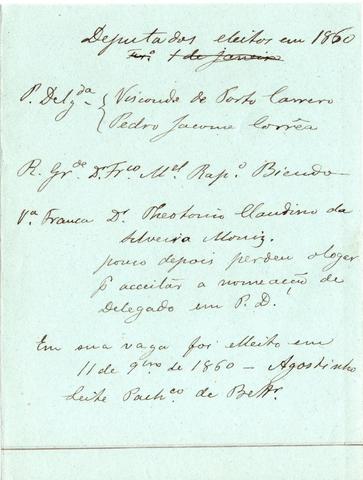 Deputados eleitos em 1860
1 de Janeiro
P. Delg.da { Visconde de Porto Carrero
Pedro Jacome Corrêa
R. Gr.de Dr. Fr.co M.el Rap.o Bicudo
V.a Franca Dr. Theotonio Claudino da
Silveira Moniz.
pouco depois perdeu o logar
p acceitar a nomeação de
Delegado em P. D.
Em sua vaga foi eleito em
11 de 9bro de 1860 - Agostinho
Leite Pach.co de